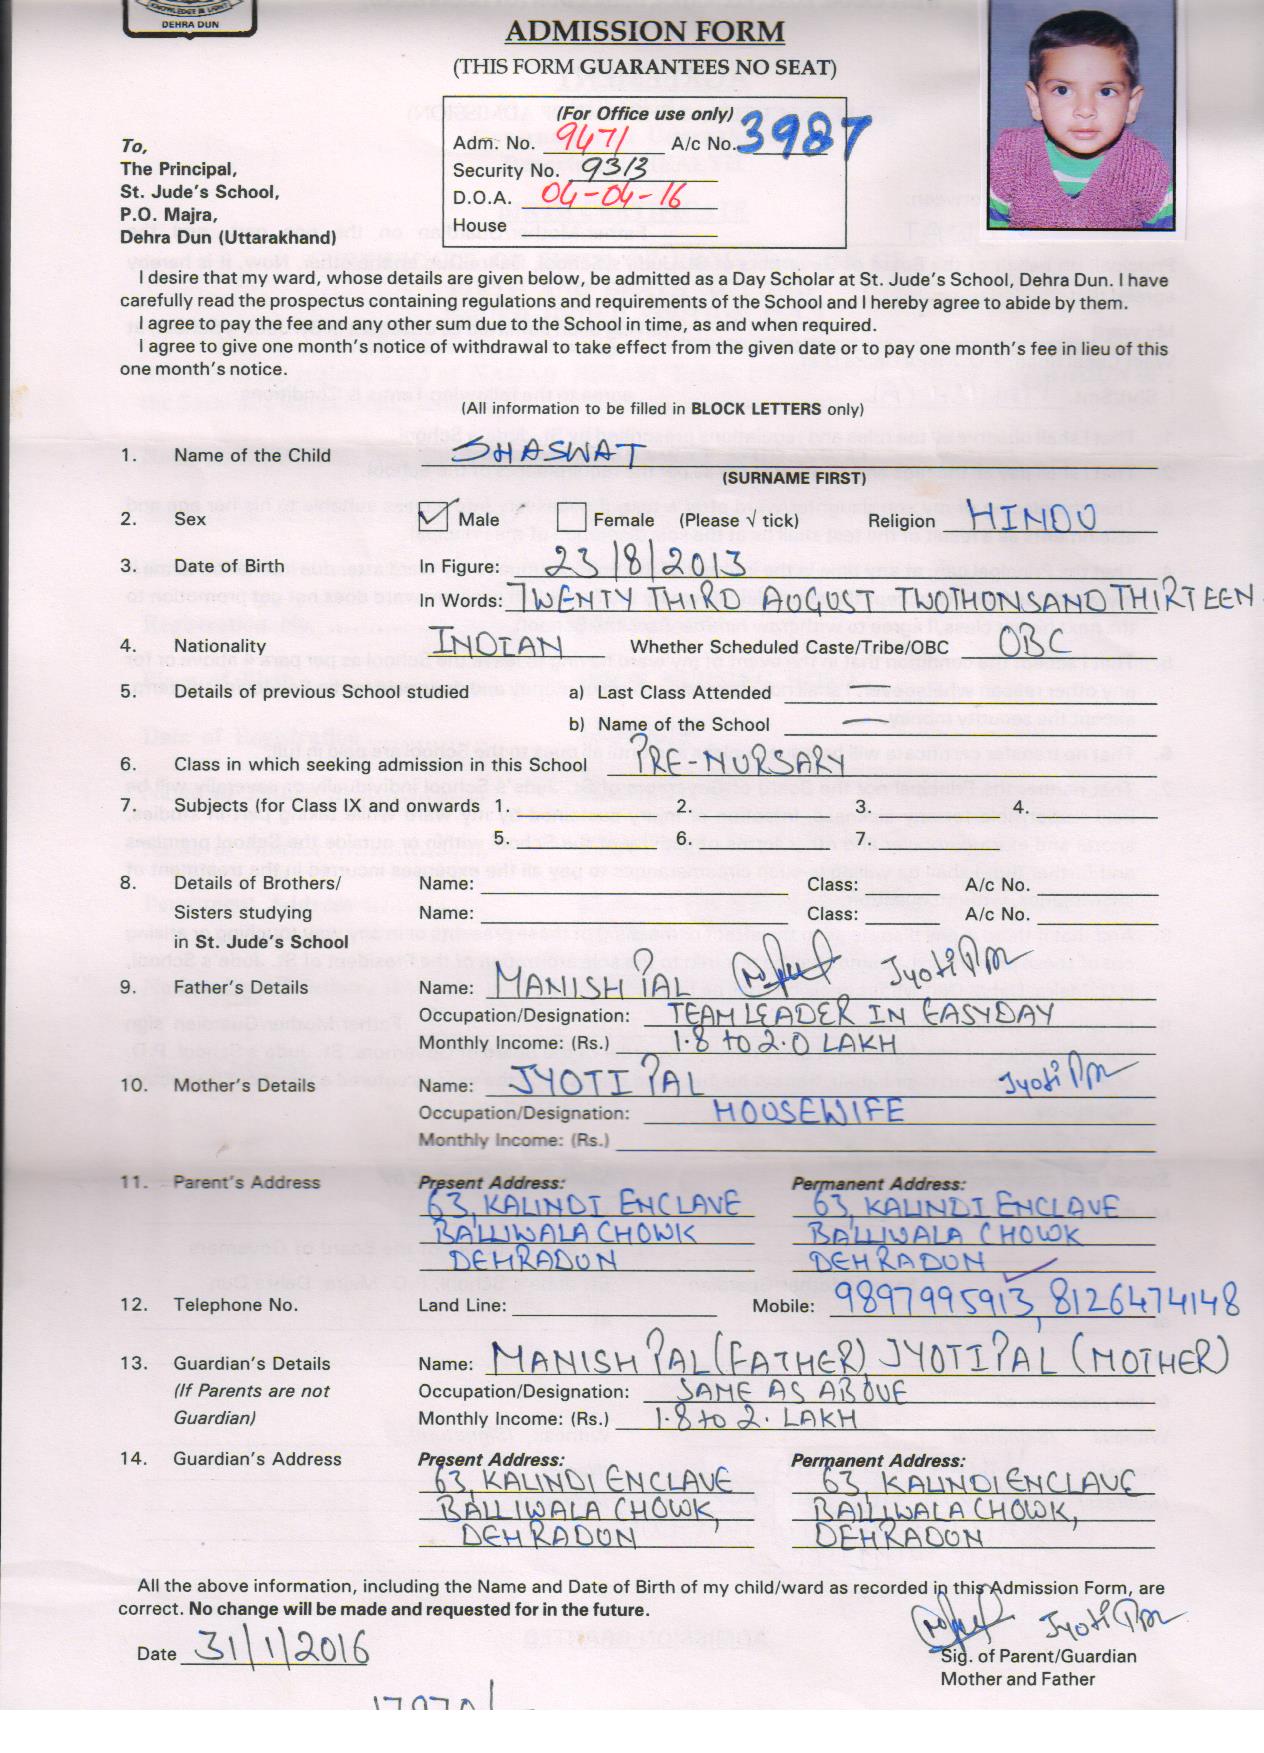 KNOWLEDGE IS LIGHT
DEHRA DUN
ADMISSION FORM
(THIS FORM GUARANTEES NO SEAT)
(For Office use only)
Adm. No. 9471 A/c No. 3987
Security No. 9313
D.O.A. 04-04-16
House
To,
The Principal,
St. Jude's School,
P.O. Majra,
Dehra Dun (Uttarakhand)
I desire that my ward, whose details are given below, be admitted as a Day Scholar at St. Jude's School, Dehra Dun. I have
carefully read the prospectus containing regulations and requirements of the School and I hereby agree to abide by them.
I agree to pay the fee and any other sum due to the School in time, as and when required.
I agree to give one month's notice of withdrawal to take effect from the given date or to pay one month's fee in lieu of this
one month's notice.
(All information to be filled in BLOCK LETTERS only)
1. Name of the Child SHASWAT
(SURNAME FIRST)
2. Sex Male Female (Please √ tick) Religion HINDU
3. Date of Birth In Figure: 23/8/2013
In Words: TWENTY THIRD AUGUST TWOTHONSAND THIRTEEN
4. Nationality INDIAN Whether Scheduled Caste/Tribe/OBC OBC
5. Details of previous School studied a) Last Class Attended
b) Name of the School —
6. Class in which seeking admission in this School PRE-NURSARY
7. Subjects (for Class IX and onwards 1. 2. 3. 4.
5. 6. 7.
8. Details of Brothers/ Name: Class: A/c No.
Sisters studying Name: Class: A/c No.
in St. Jude's School
9. Father's Details Name: MANISH PAL Jyoti Pal
Occupation/Designation: TEAM LEADER IN EASYDAY
Monthly Income: (Rs.) 1.8 to 2.0 LAKH
10. Mother's Details Name: JYOTI PAL Jyoti Pal
Occupation/Designation: HOUSEWIFE
Monthly Income: (Rs.)
11. Parent's Address Present Address: Permanent Address:
63, KALINDI ENCLAVE 63, KALINDI ENCLAVE
BALLIWALA CHOWK BALLIWALA CHOWK
DEHRADUN DEHRADUN
12. Telephone No. Land Line: Mobile: 9897995913, 8126474148
13. Guardian's Details Name: MANISH PAL (FATHER) JYOTI PAL (MOTHER)
(If Parents are not Occupation/Designation: SAME AS ABOVE
Guardian) Monthly Income: (Rs.) 1.8 to 2. LAKH
14. Guardian's Address Present Address: Permanent Address:
63, KALINDI ENCLAVE 63, KALINDI ENCLAVE
BALLIWALA CHOWK, BALLIWALA CHOWK,
DEHRADUN DEHRADUN
All the above information, including the Name and Date of Birth of my child/ward as recorded in this Admission Form, are
correct. No change will be made and requested for in the future.
Jyoti Pal
Date 31/1/2016 Sig. of Parent/Guardian
Mother and Father